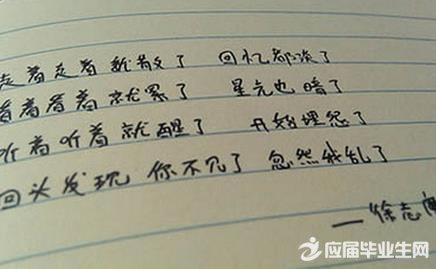 走着走着就散了 回忆都淡了
看着看着就累了 星光也暗了
听着听着就醒了 开始埋怨了
回头发现 你不见了 忽然我乱了
—徐志
应届毕业生网